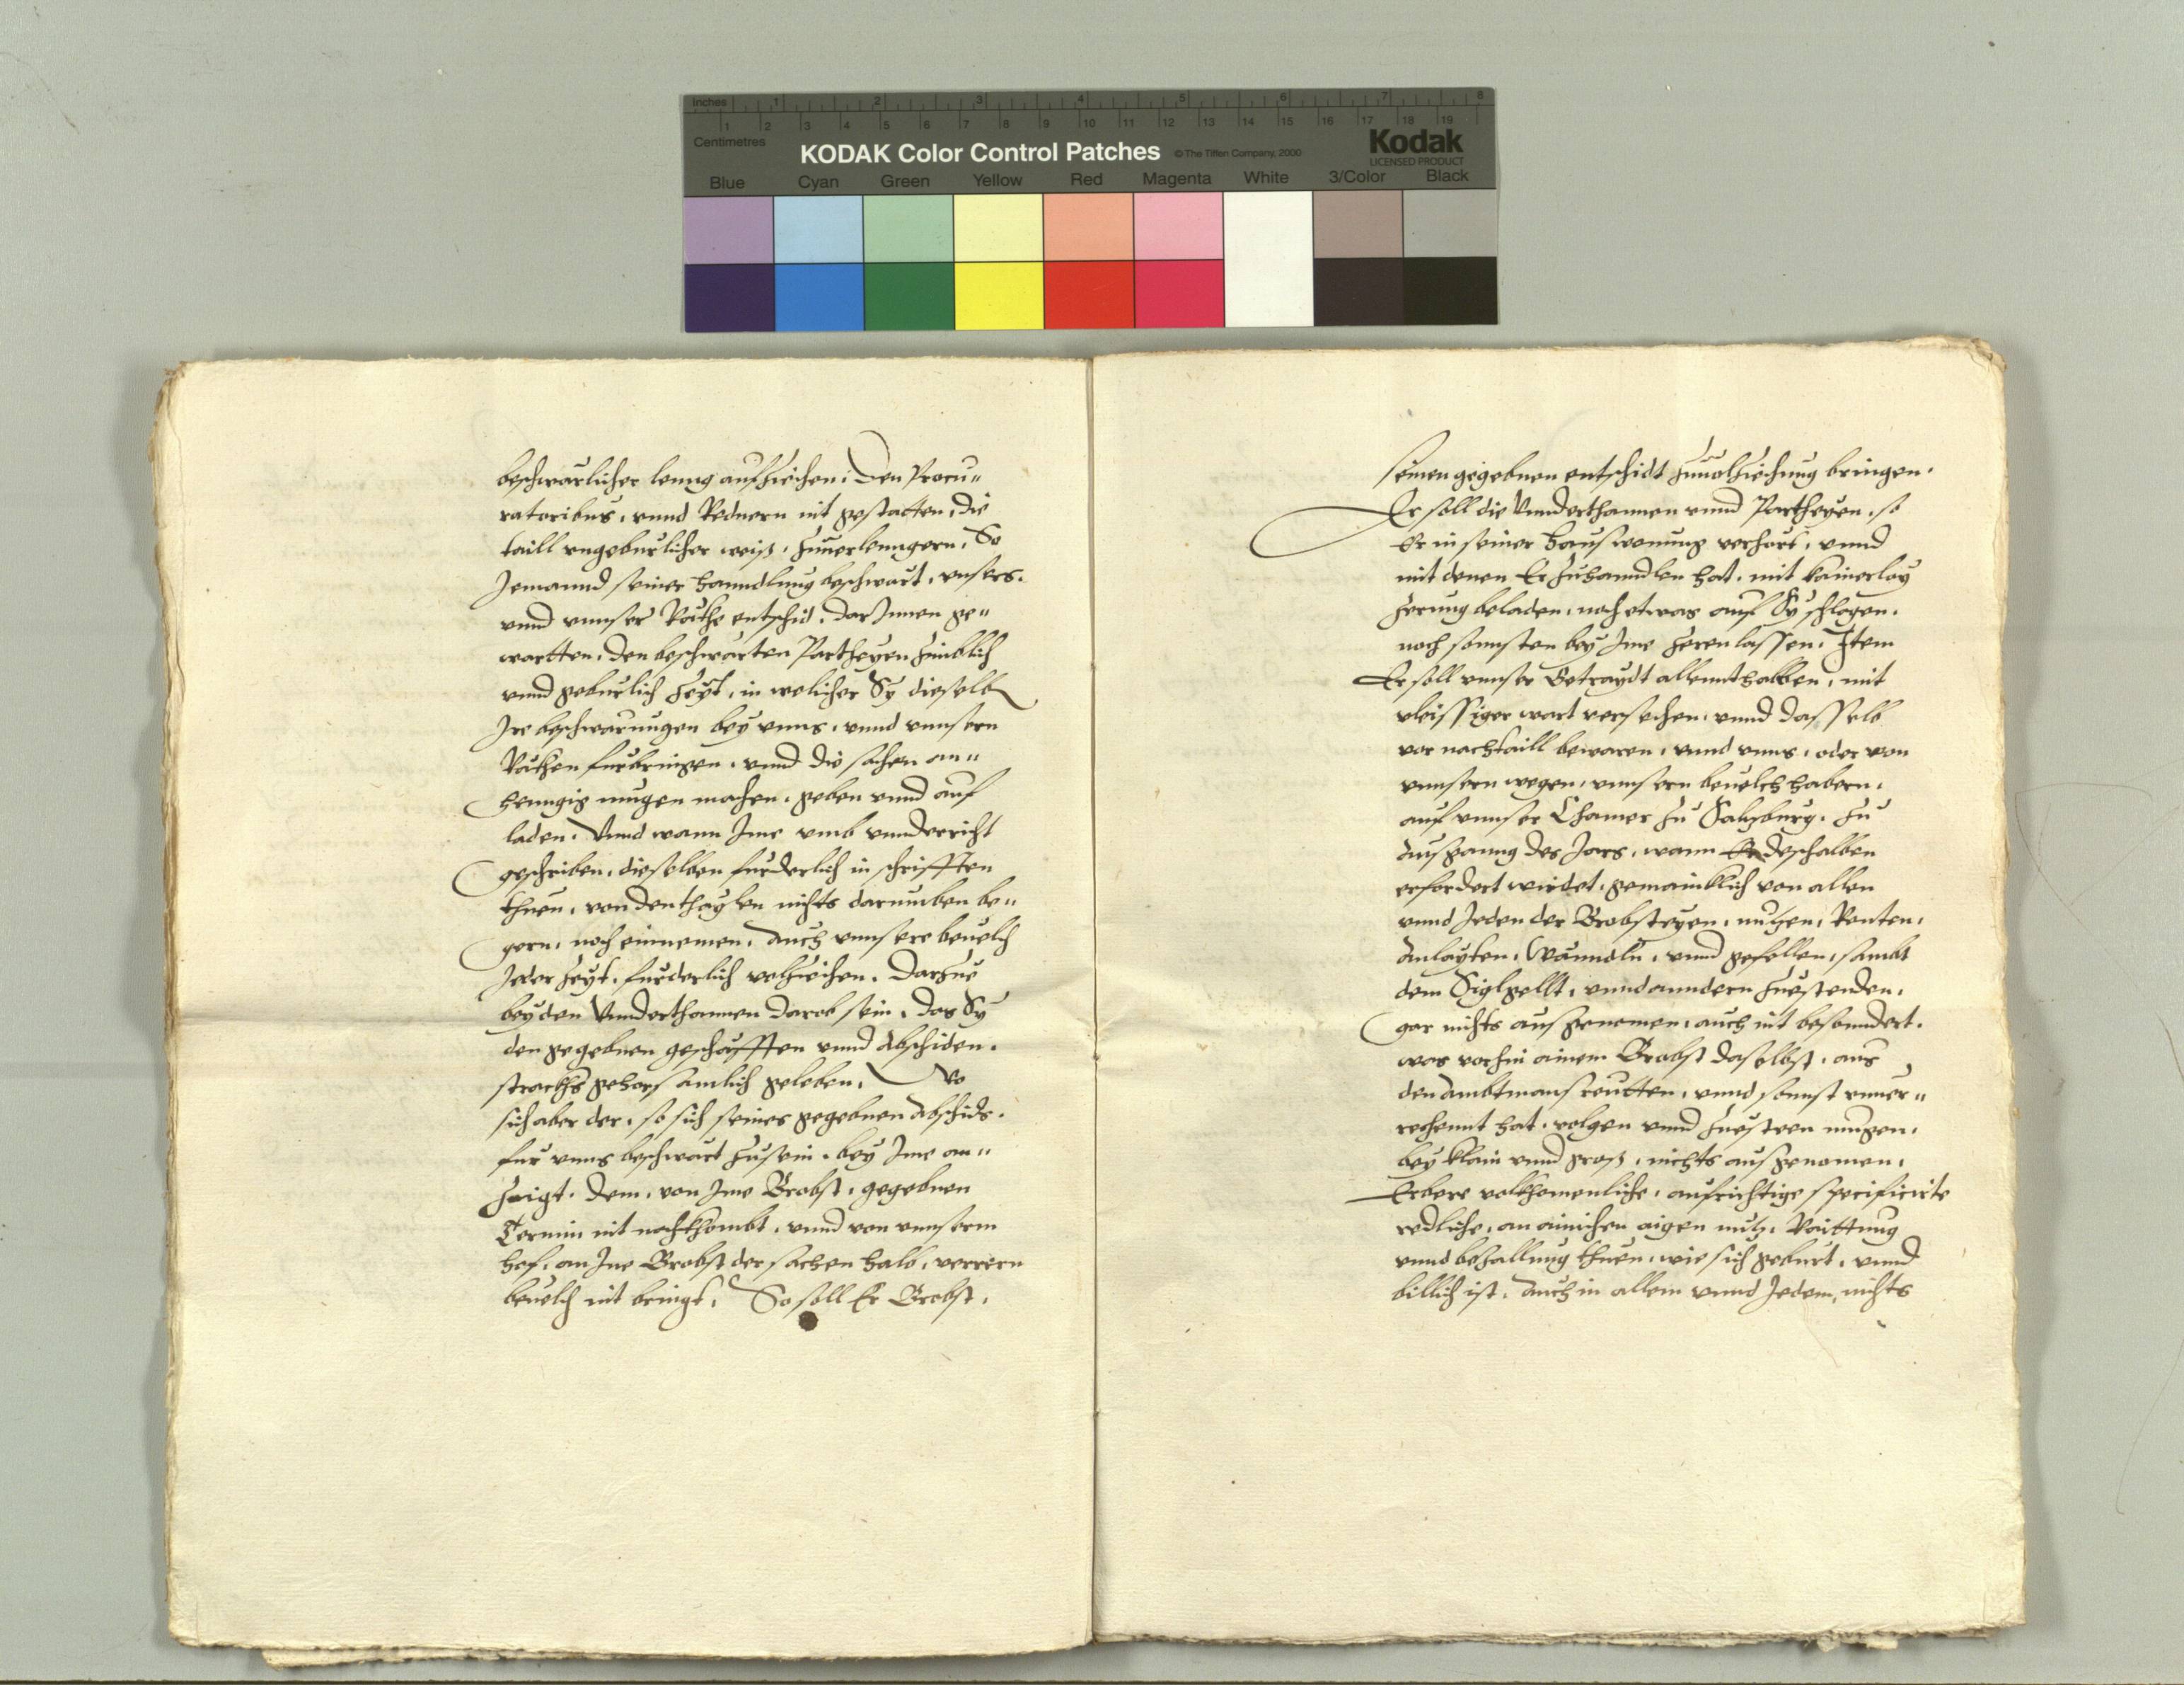 Inches 1 2 3 4 5 6 7 8
1 2 3 4 5 6 7 8 9 10 11 12 13 14 15 16 17 18 19
Centimetres
KODAK Color Control Patches © The Tiffen Company, 2000 Kodak
LICENSED PRODUCT
Blue Cyan Green Yellow Red Magenta White 3/Color Black
beschwärlicher leung aufziechen. Den Procu"
ratoribus, vnnd Rednern nit gestatten, die
taill vngeburlicher weiß, zuuerlenngern. So
Jemannd seiner hanndlung beschwärt, vnsers.
vnnd vnnser Räthe entschid, darJnnen ge"
wartten, den beschwärten Partheyen zimblich
vnnd geburlich zeyt, in welicher Sy dieselb
Jre beschwärungen bey vnns, vnnd vnnsern
Räthen furbringen, vnnd die sachen an"
henngig mugen machen, geben vnnd auf
laden. Vnnd wann Jme vmb vnnderricht
geschriben, dieselben furderlich in schrifften
thuen, von den thaylen nichts darumben be"
gern, noch einnemen, Auch vnnsere beuelch
Jeder zeyt, furderlich volziechen. Darzue
bey den Vnnderthannen darob sein, das Sy
den gegebnen geschäfften vnnd Abschiden.
strackhs gehorsamlich geleben. Wo
sich aber der, so sich seines gegebnen Abschids.
fur vnns beschwärt zusein, bey Jme an"
zaigt, dem, von Jme Brobst, gegebnen
Termin nit nachkhombt, vnnd von vnnserm
hof, an Jne Brobst der sachen halb, verrern
beuelch nit bringt, So soll Er Brobst,
seinen gegebnen entschidt zuuolziechung bringen.
Er soll die Vnnderthannen vnnd Partheyen, so
Er in seiner hauswonung verhört, vnnd
mit denen Er zuhanndlen hat, mit kainerlay
zerung beladen, noch etwas auf Sy schlagen.
noch sonnsten bey Jme zeren lassen. Item
Er soll vnnser Getraydt allennthalben, mit
vleissiger wart versechen, vnnd dasselb
vor nachtaill bewaren, vnnd vnns, oder von
vnnsern wegen, vnnsern beuelch habern,
auf vnnser Chamer zu Salzburg, zu
Ausganng des Jars, wann Er deshalben
erfordert wirdet, gemainklich von allen
vnnd Jeden der Brobsteyen, nuzen, Renten,
Anlayten, Wänndln, vnnd gefellen, sambt
dem Siglgellt, vnnd anndern zuestenden,
gar nichts ausgenomen, auch nit besonndert.
was vorhin ainem Brobst daselbst, aus
den Ambtmansreutten, vnnd sonnst vnuer"
rechennt hat, volgen vnnd zuesteen mugen,
bey klain vnnd groß, nichts ausgenomen,
Erbere volkhomenliche, aufrichtige specificirte
redliche, an ainichen aigen nutz, Raittung
vnnd bezallung thuen, wie sich geburt, vnnd
billich ist, Auch in allem vnnd Jedem, nichts